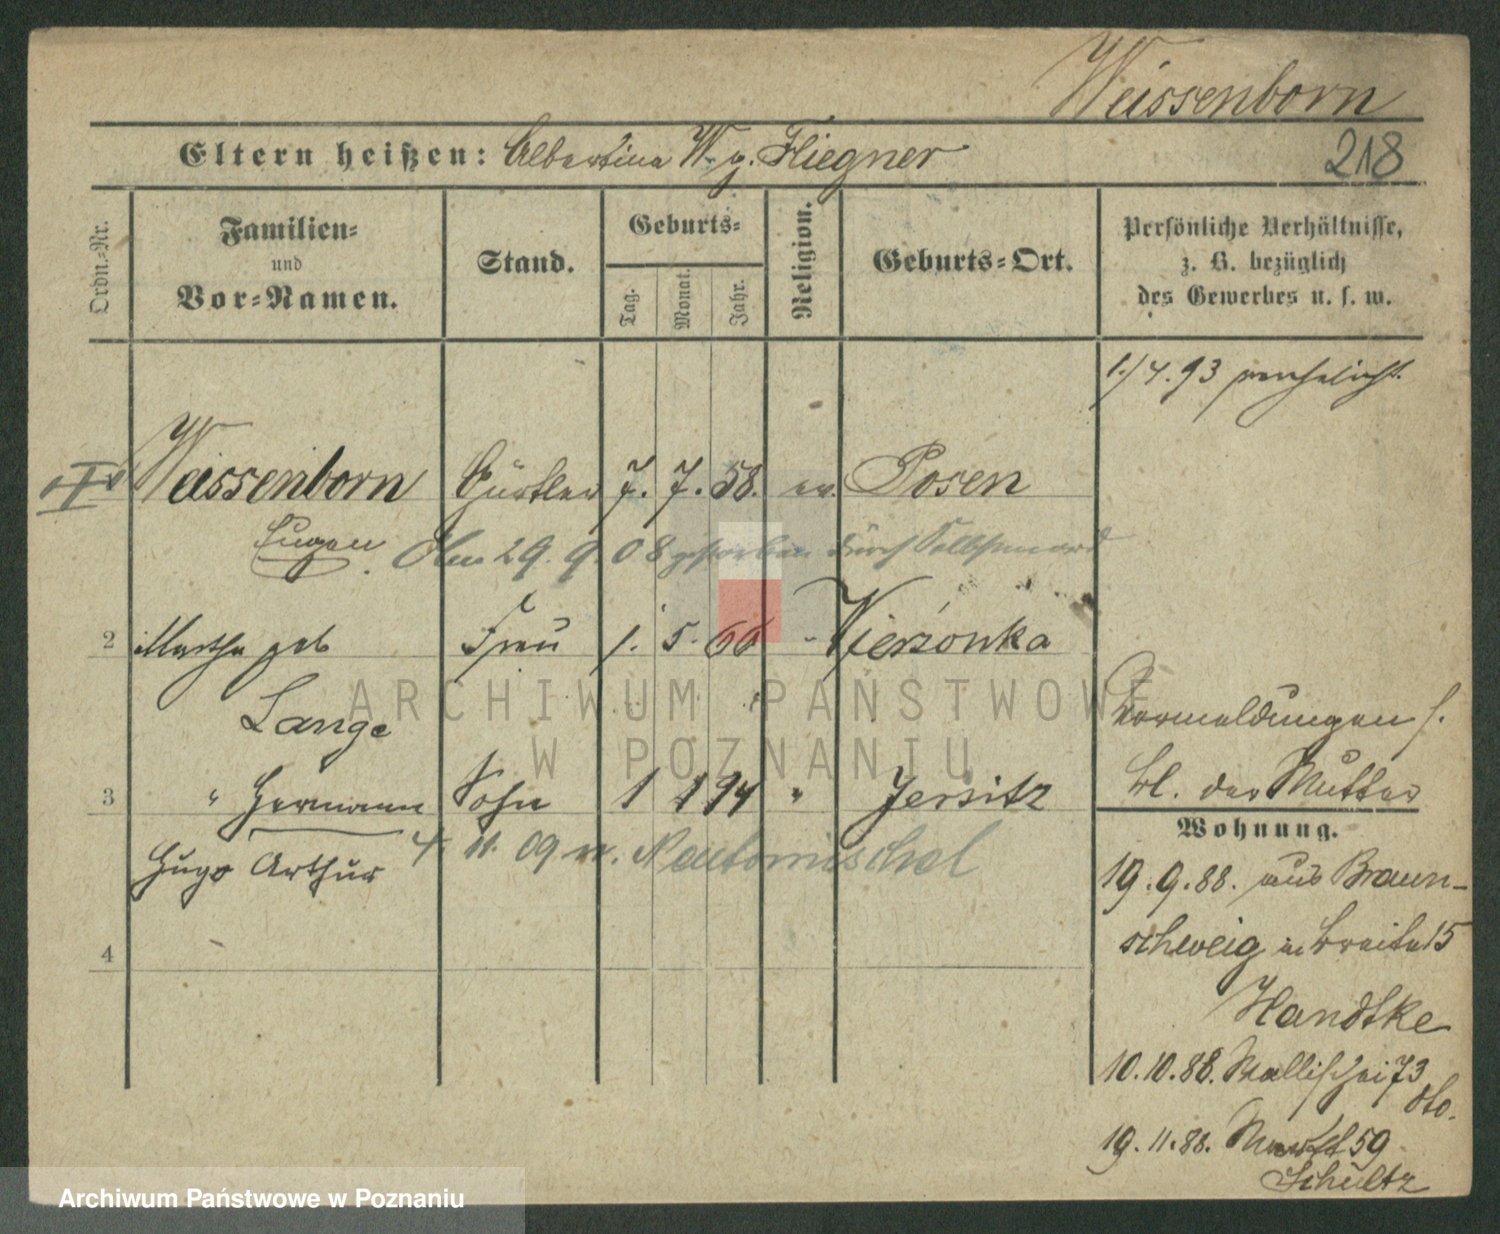 Weissenborn
Eltern heißen: Albertine W. g. Fliegner
218
Ordn.-Nr.
Familien-
und
Vor-Namen.
Stand.
Geburts-
Tag.
Monat.
Jahr.
Religion.
Geburts-Ort.
Persönliche Verhältnisse,
z. B. bezüglich
des Gewerbes u. s. w.
1./4.93 verehelicht.
Weissenborn Gürtler 7. 7. 58. ev. Posen
Eugen. Am 29. 9. 08 gestorben durch Selbstmord
2 Martha geb Frau 1. 5. 66 - Wierzonka
Lange
Vermeldungen s.
bl. der Mutter
3 " Hermann Sohn 1 1 94 " Jersitz
Hugo Arthur
4. 11. 09 n. Neutomischel
4
Wohnung.
19.9.88. aus Braun-
schweig in Breite 15
Handtke
10.10.88. Wallischei 73
dto.
19.11.88. Markt 59
Schultz
ARCHIWUM PAŃSTWOWE
W POZNANIU
Archiwum Państwowe w Poznaniu